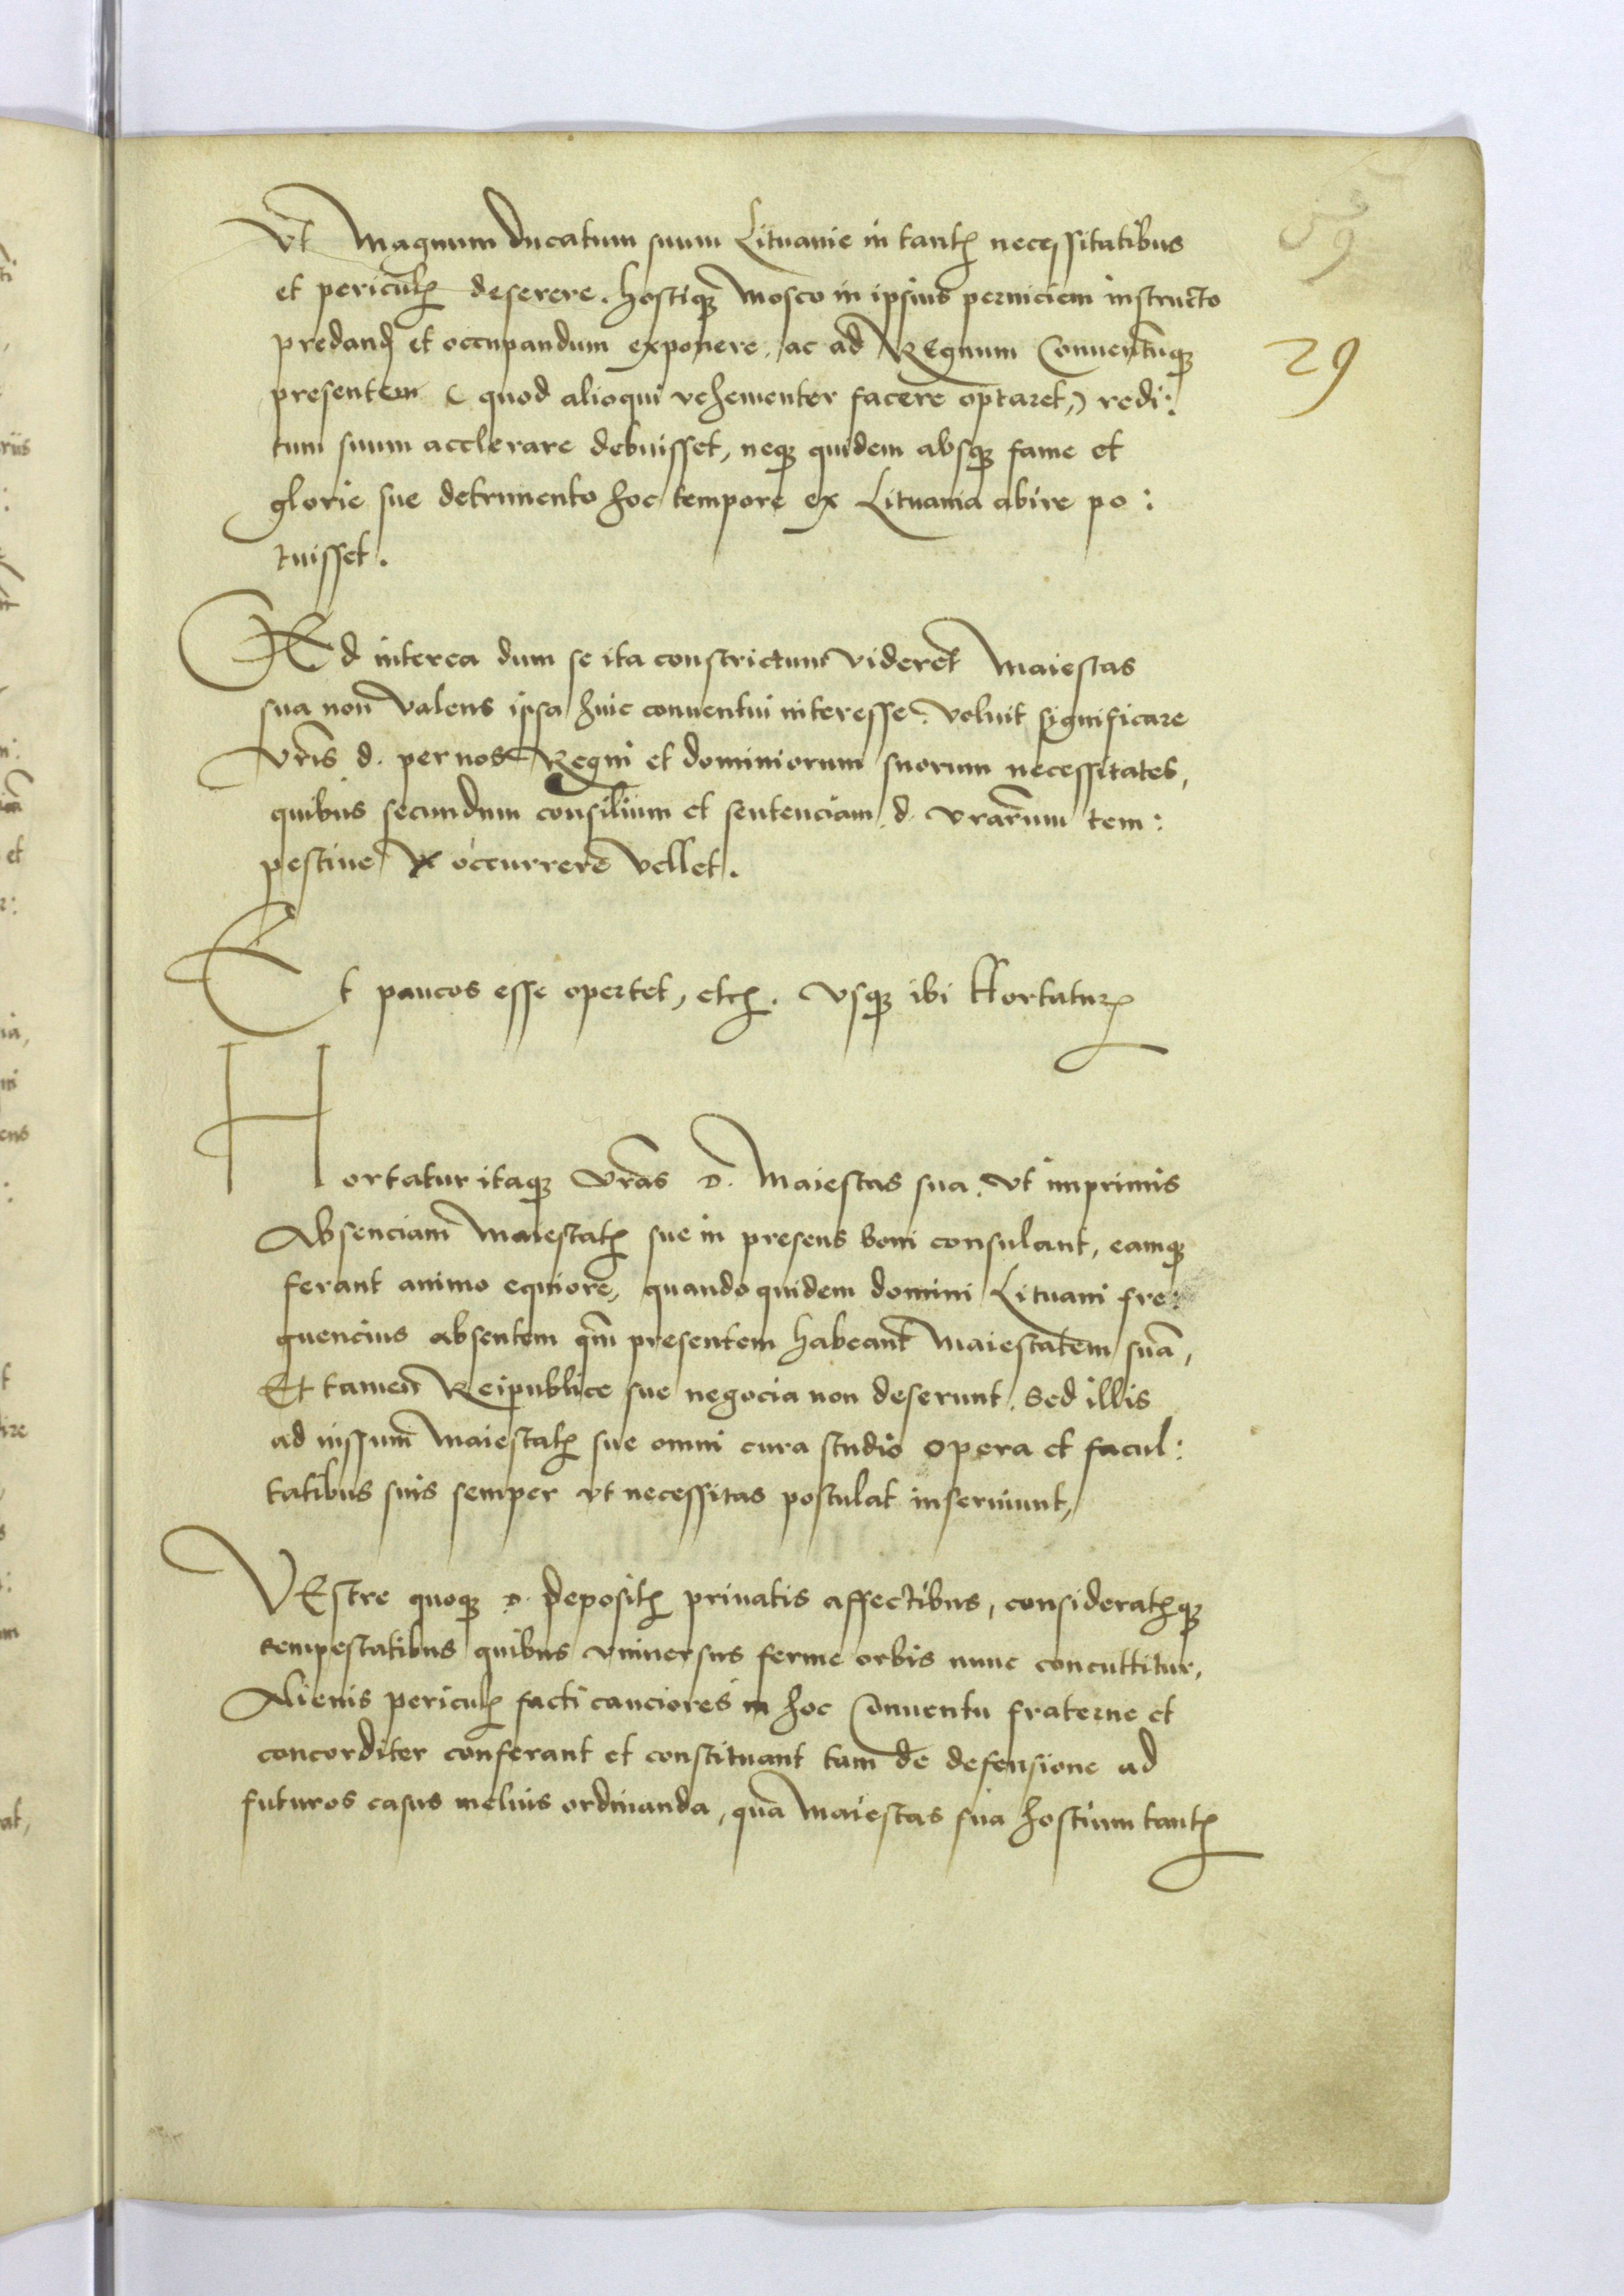 59
29
Vt Magnum ducatum suum Lituanie in tantꝭ necessitatibus
et periculꝭ deserere. hostiqꝫ Mosco in ipsius perniciem instructo
predandū et occupandum exponere, ac ad REgnum Conuentūqꝫ
presentem ( quod alioqui vehementer facere optaret,) redi:
tum suum acclerare debuisset, neqꝫ quidem absqꝫ fame et
glorie sue detrimento hoc tempore ex Lituania abire po:
tuisset.
SEd interea dum se ita constrictum videret Maiestas
sua non valens ipsa huic conuentui interesse. voluit significare
vr̄is d. per nos Regni et dominiorum suorum necessitates,
quibus secundum consilium et sentenciam d. vrārum tem:
pestiue occurrere vellet.
Et paucos esse opertet, etcꝭ. vsqꝫ ibi Hortaturꝭ
Hortatur itaqꝫ vr̄as D. Maiestas sua. vt imprimis
Absenciam Maiestatꝭ sue in presens boni consulant, eamqꝫ
ferant animo equiore, quando quidem domini Lituani fre:
quencius absentem qm̄ presentem habeant Maiestatem suā,
Et tamen Reipublice sue negocia non deserunt. Sed illis
ad iussum Maiestatꝭ sue omni cura studio opera et facul:
tatibus suis semper vt necessitas postulat inseruiunt,
VEstre quoqꝫ D. depositꝭ priuatis affectibus, consideratꝭqꝫ
tempestatibus quibus vniuersus ferme orbis nunc concuttitur,
Alienis periculꝭ facti cauciores in hoc Conuentu fraterne et
concorditer conferant et constituant tam de defensione ad
futuros casus melius ordinanda, quā Maiestas sua hostium tantꝭ